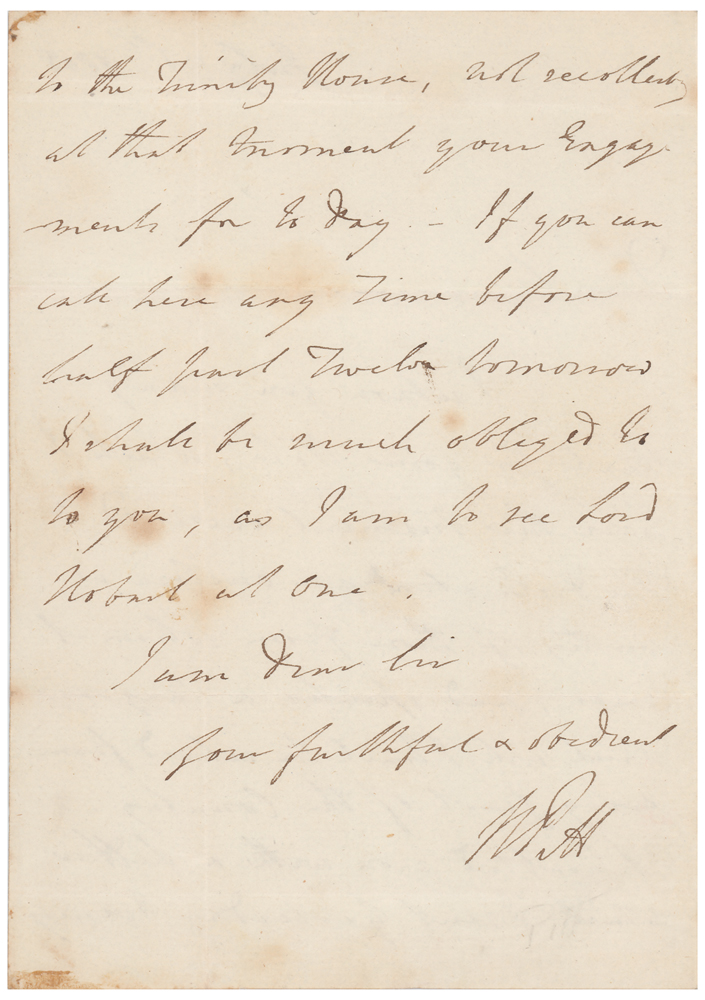 to the Trinity House, not recollectg
at that moment your Engag-
ments for to Day – If you can
call here any Time before
half past Twelve tomorrow
I shall be much obliged to
to you, as I am to see Lord
Hobart at One.
I am Dear Sir
Your faithful & obedient
W Pitt